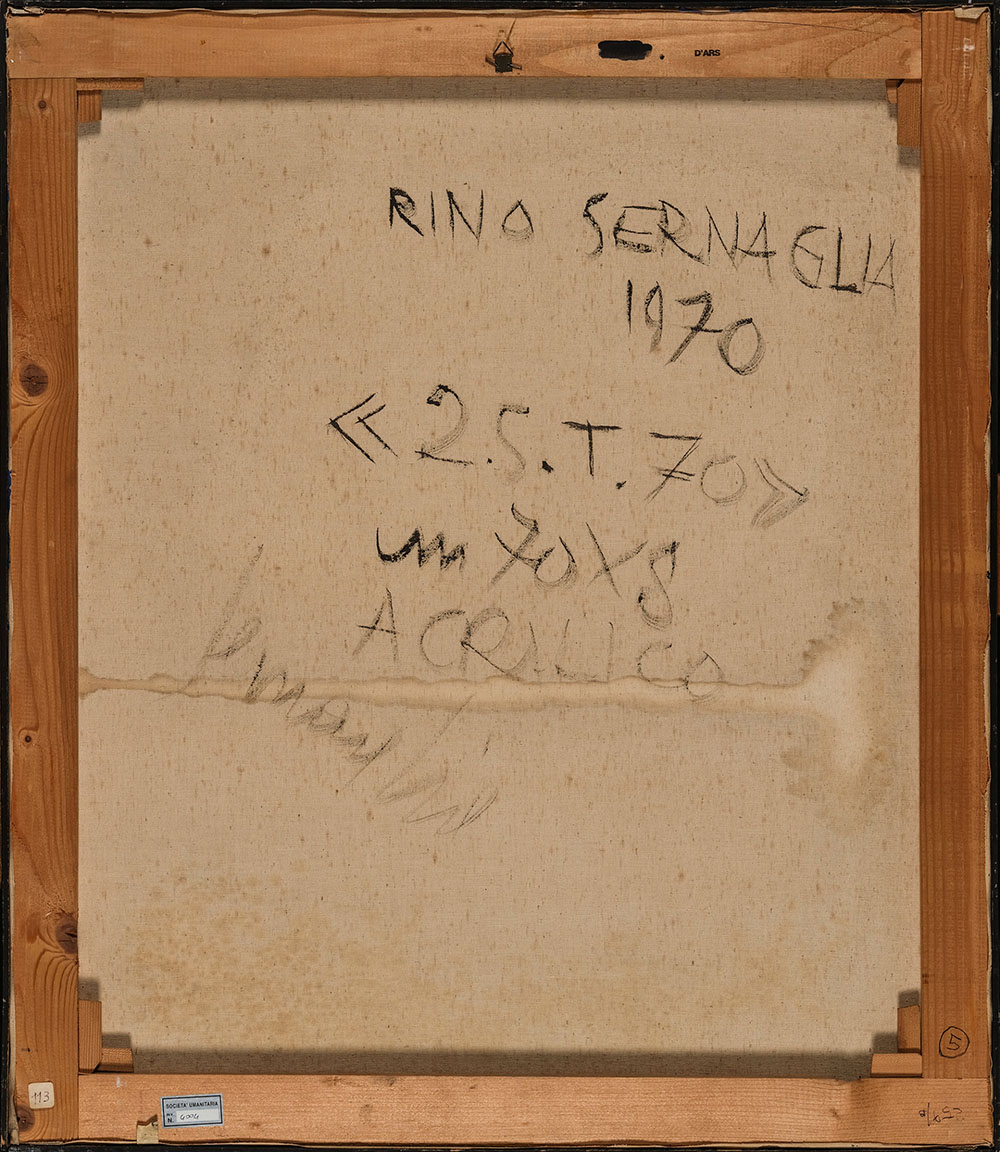 D'ARS
RINO SERNAGLIA
1970
«2.S.T.70»
70X8
ACRILICO
5
113
SOCIETA' UMANITARIA
INV.
N. 4004